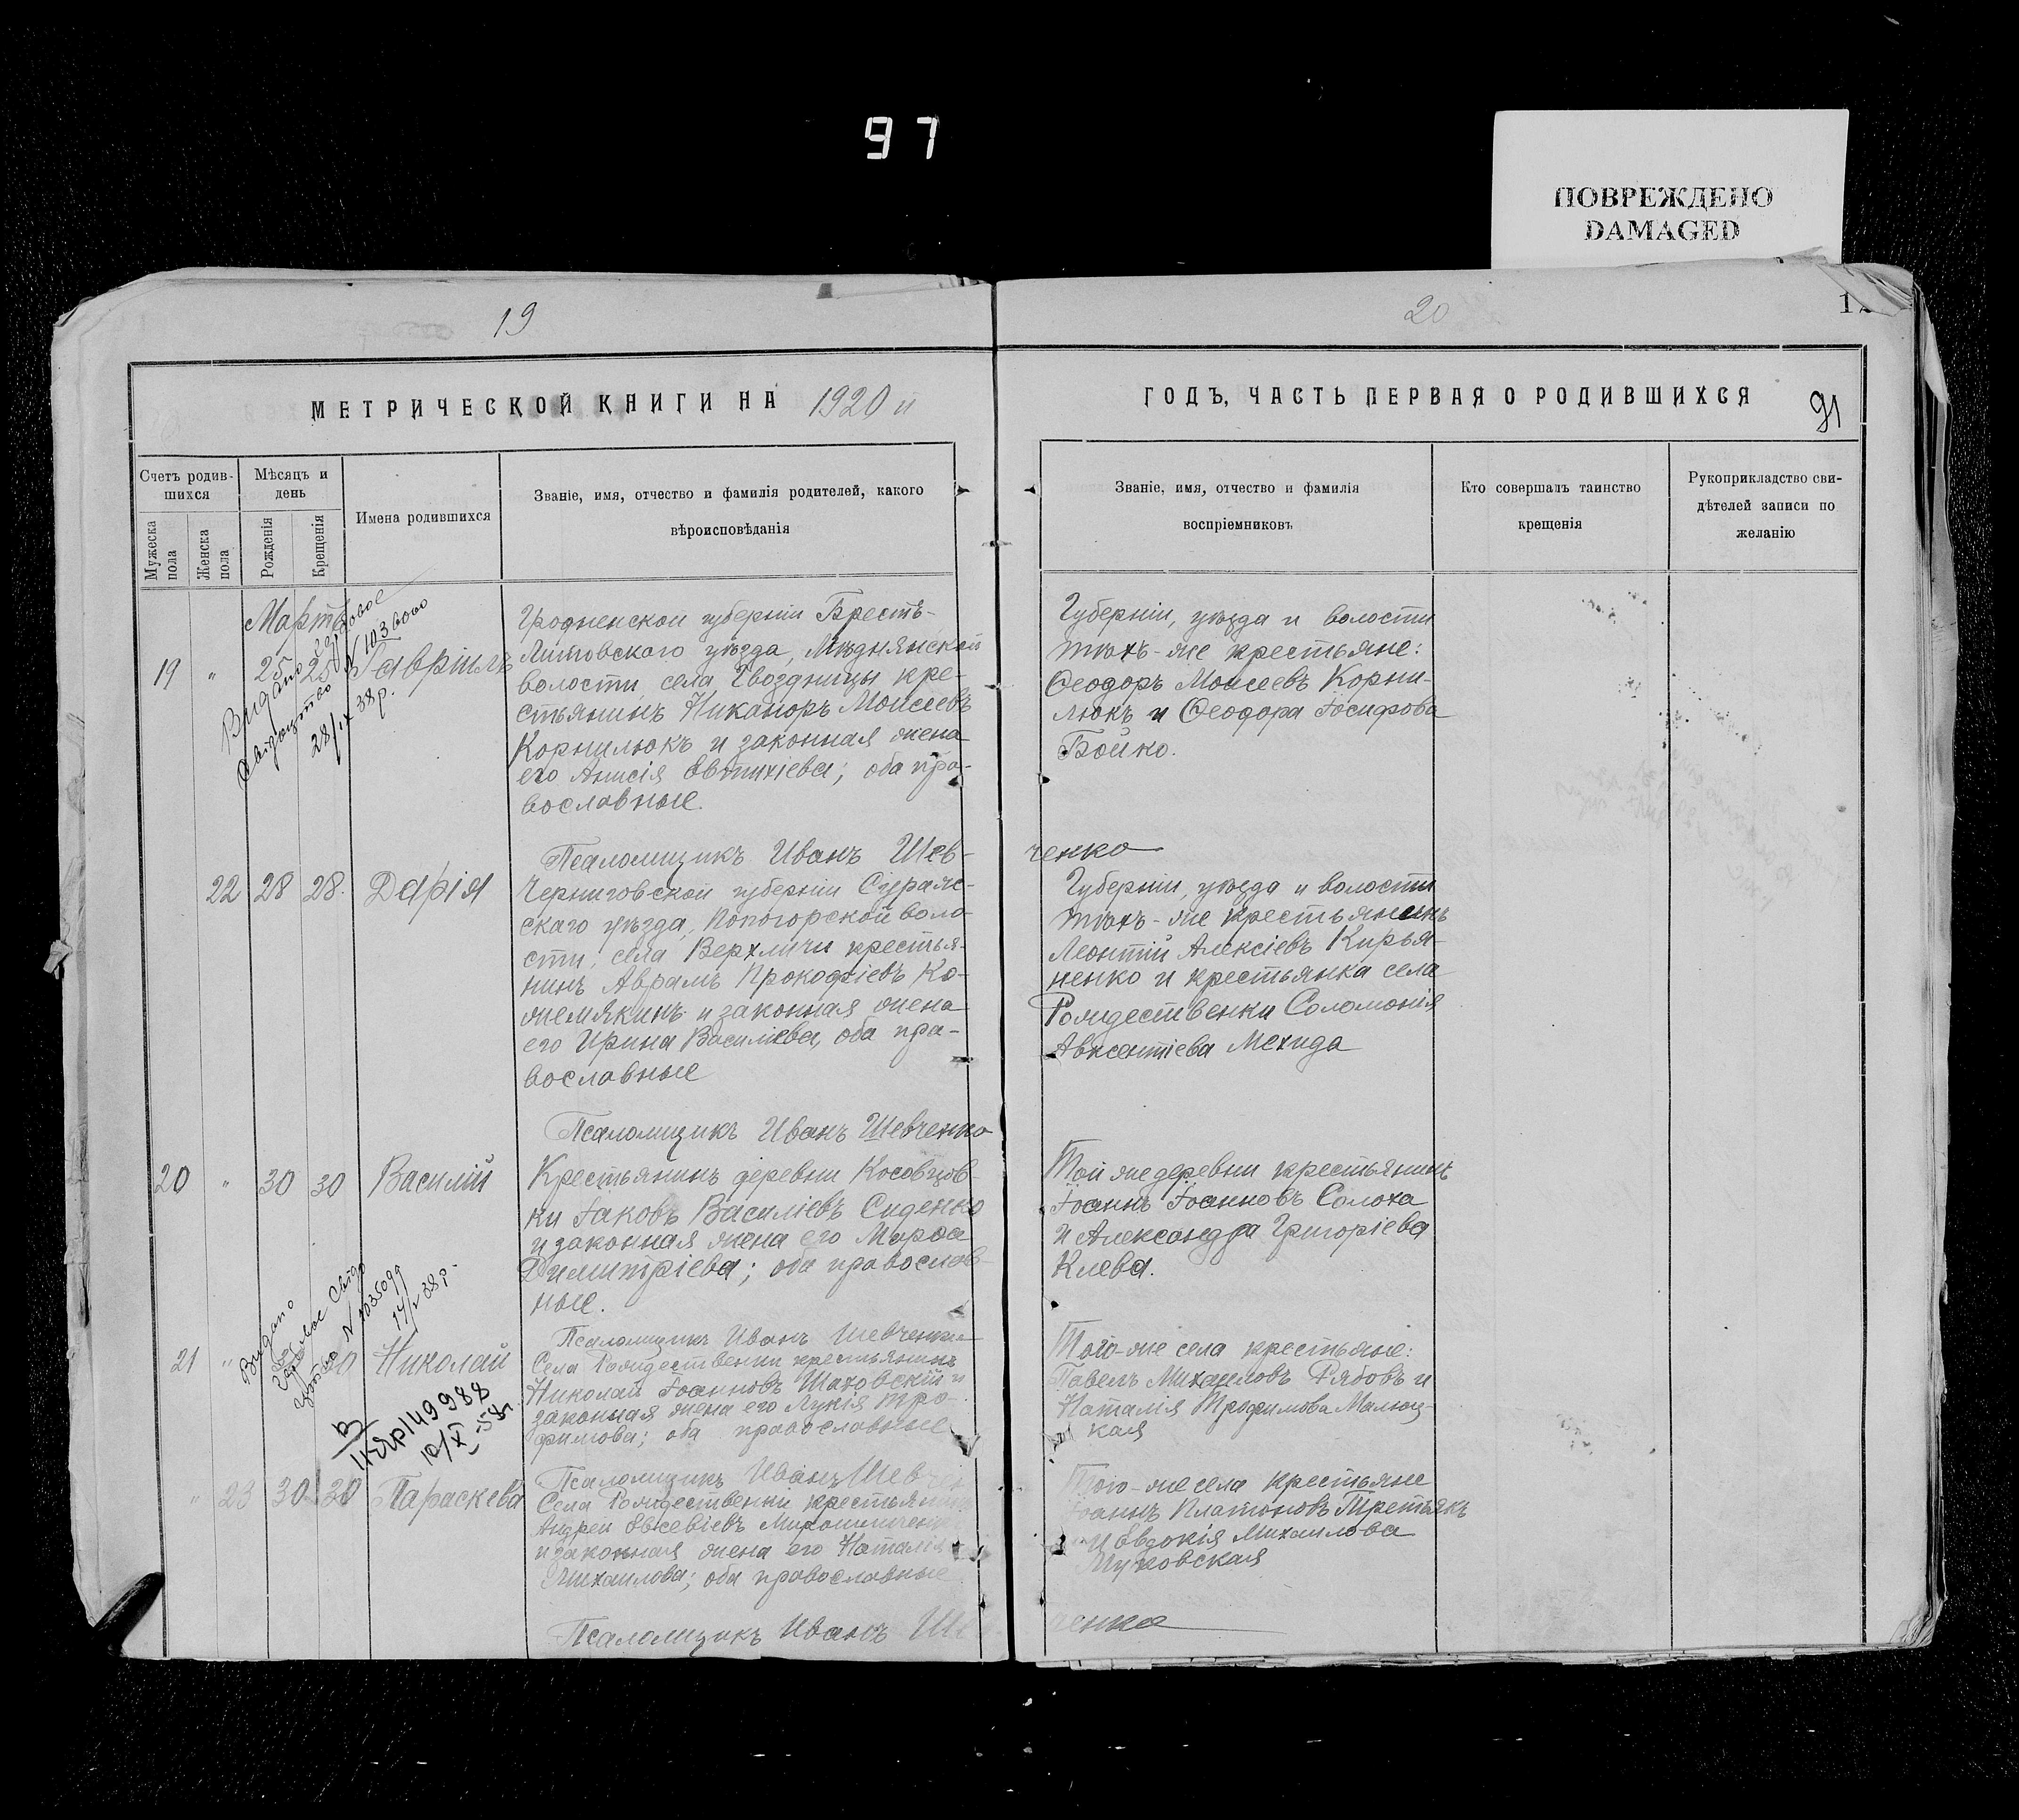 97
ПОВРЕЖДЕНО
DAMAGED
19
20
МЕТРИЧЕСКОЙ КНИГИ НА 1920 й
ГОДЪ, ЧАСТЬ ПЕРВАЯ О РОДИВШИХСЯ
91
Счетъ родив-
шихся
Мѣсяцъ и
день
Имена родившихся
Званіе, имя, отчество и фамилія родителей, какого
вѣроисповѣданія
Мужеска
пола
Женска
пола
Рожденія
Крещенія
Званіе, имя, отчество и фамилія
воспріемниковъ
Кто совершалъ таинство
крещенія
Рукоприкладство сви-
дѣтелей записи по
желанію
Мартъ
19 " 25 25 Гавріилъ
Видано
28/IX 38 р.
Гродненской губерніи Брестъ-
Литовскаго уѣзда, Мѣднянской
волости, села Гвоздницы кре-
стьянинъ Никаноръ Моисеевъ
Корнилюкъ и законная жена
его Анисія Евтихіева; оба пра-
вославные.
Губерніи, уѣзда и волости
тѣхъ-же крестьяне:
Ѳеодоръ Моисеевъ Корни-
люкъ и Ѳеодора Іосифова
Бойко.
Псаломщикъ Иванъ Шев-
ченко
22 28 28. Дарія
Черниговской губерніи Сураж-
скаго уѣзда, Попогорской воло-
сти, села Верхличи крестья-
нинъ Аврамъ Прокофіевъ Ко-
жемякинъ и законная жена
его Ирина Василіева, оба пра-
вославные
Губерніи, уѣзда и волости
тѣхъ-же крестьянинъ
Леонтій Алексіевъ Кирья-
ненко и крестьянка села
Рождественки Соломонія
Авксентіева Мехида
Псаломщикъ Иванъ Шевченко
20 " 30 30 Василій
Крестьянинъ деревни Косовцов-
ки Іаковъ Василіевъ Сиденко
и законная жена его Марѳа
Димитріева; оба православ-
ные.
Той же деревни крестьянинъ
Іоаннъ Іоанновъ Солоха
и Александра Григоріева
Клева.
Псаломщикъ Иванъ Шевченко
21 " Николай
Видано
14/V 38 р.
149988
10/X-58г.
Села Рождественки крестьянинъ
Николай Іоанновъ Шаховскій и
законная жена его Лукія Тро-
фимова; оба православные
Того-же села крестьяне:
Павелъ Михаиловъ Рябовъ и
Наталія Трофимова Малюц-
кая
Псаломщикъ Иванъ Шевчен
" 23 30 30 Параскева
Села Рождественки крестьянинъ
Андрей Евсевіевъ
и законная жена его Наталія
Михаилова; оба православные
Того-же села крестьяне
Іоаннъ Платоновъ Третьякъ
и Евдокія Михаилова
Псаломщикъ Иванъ Ше
ченко